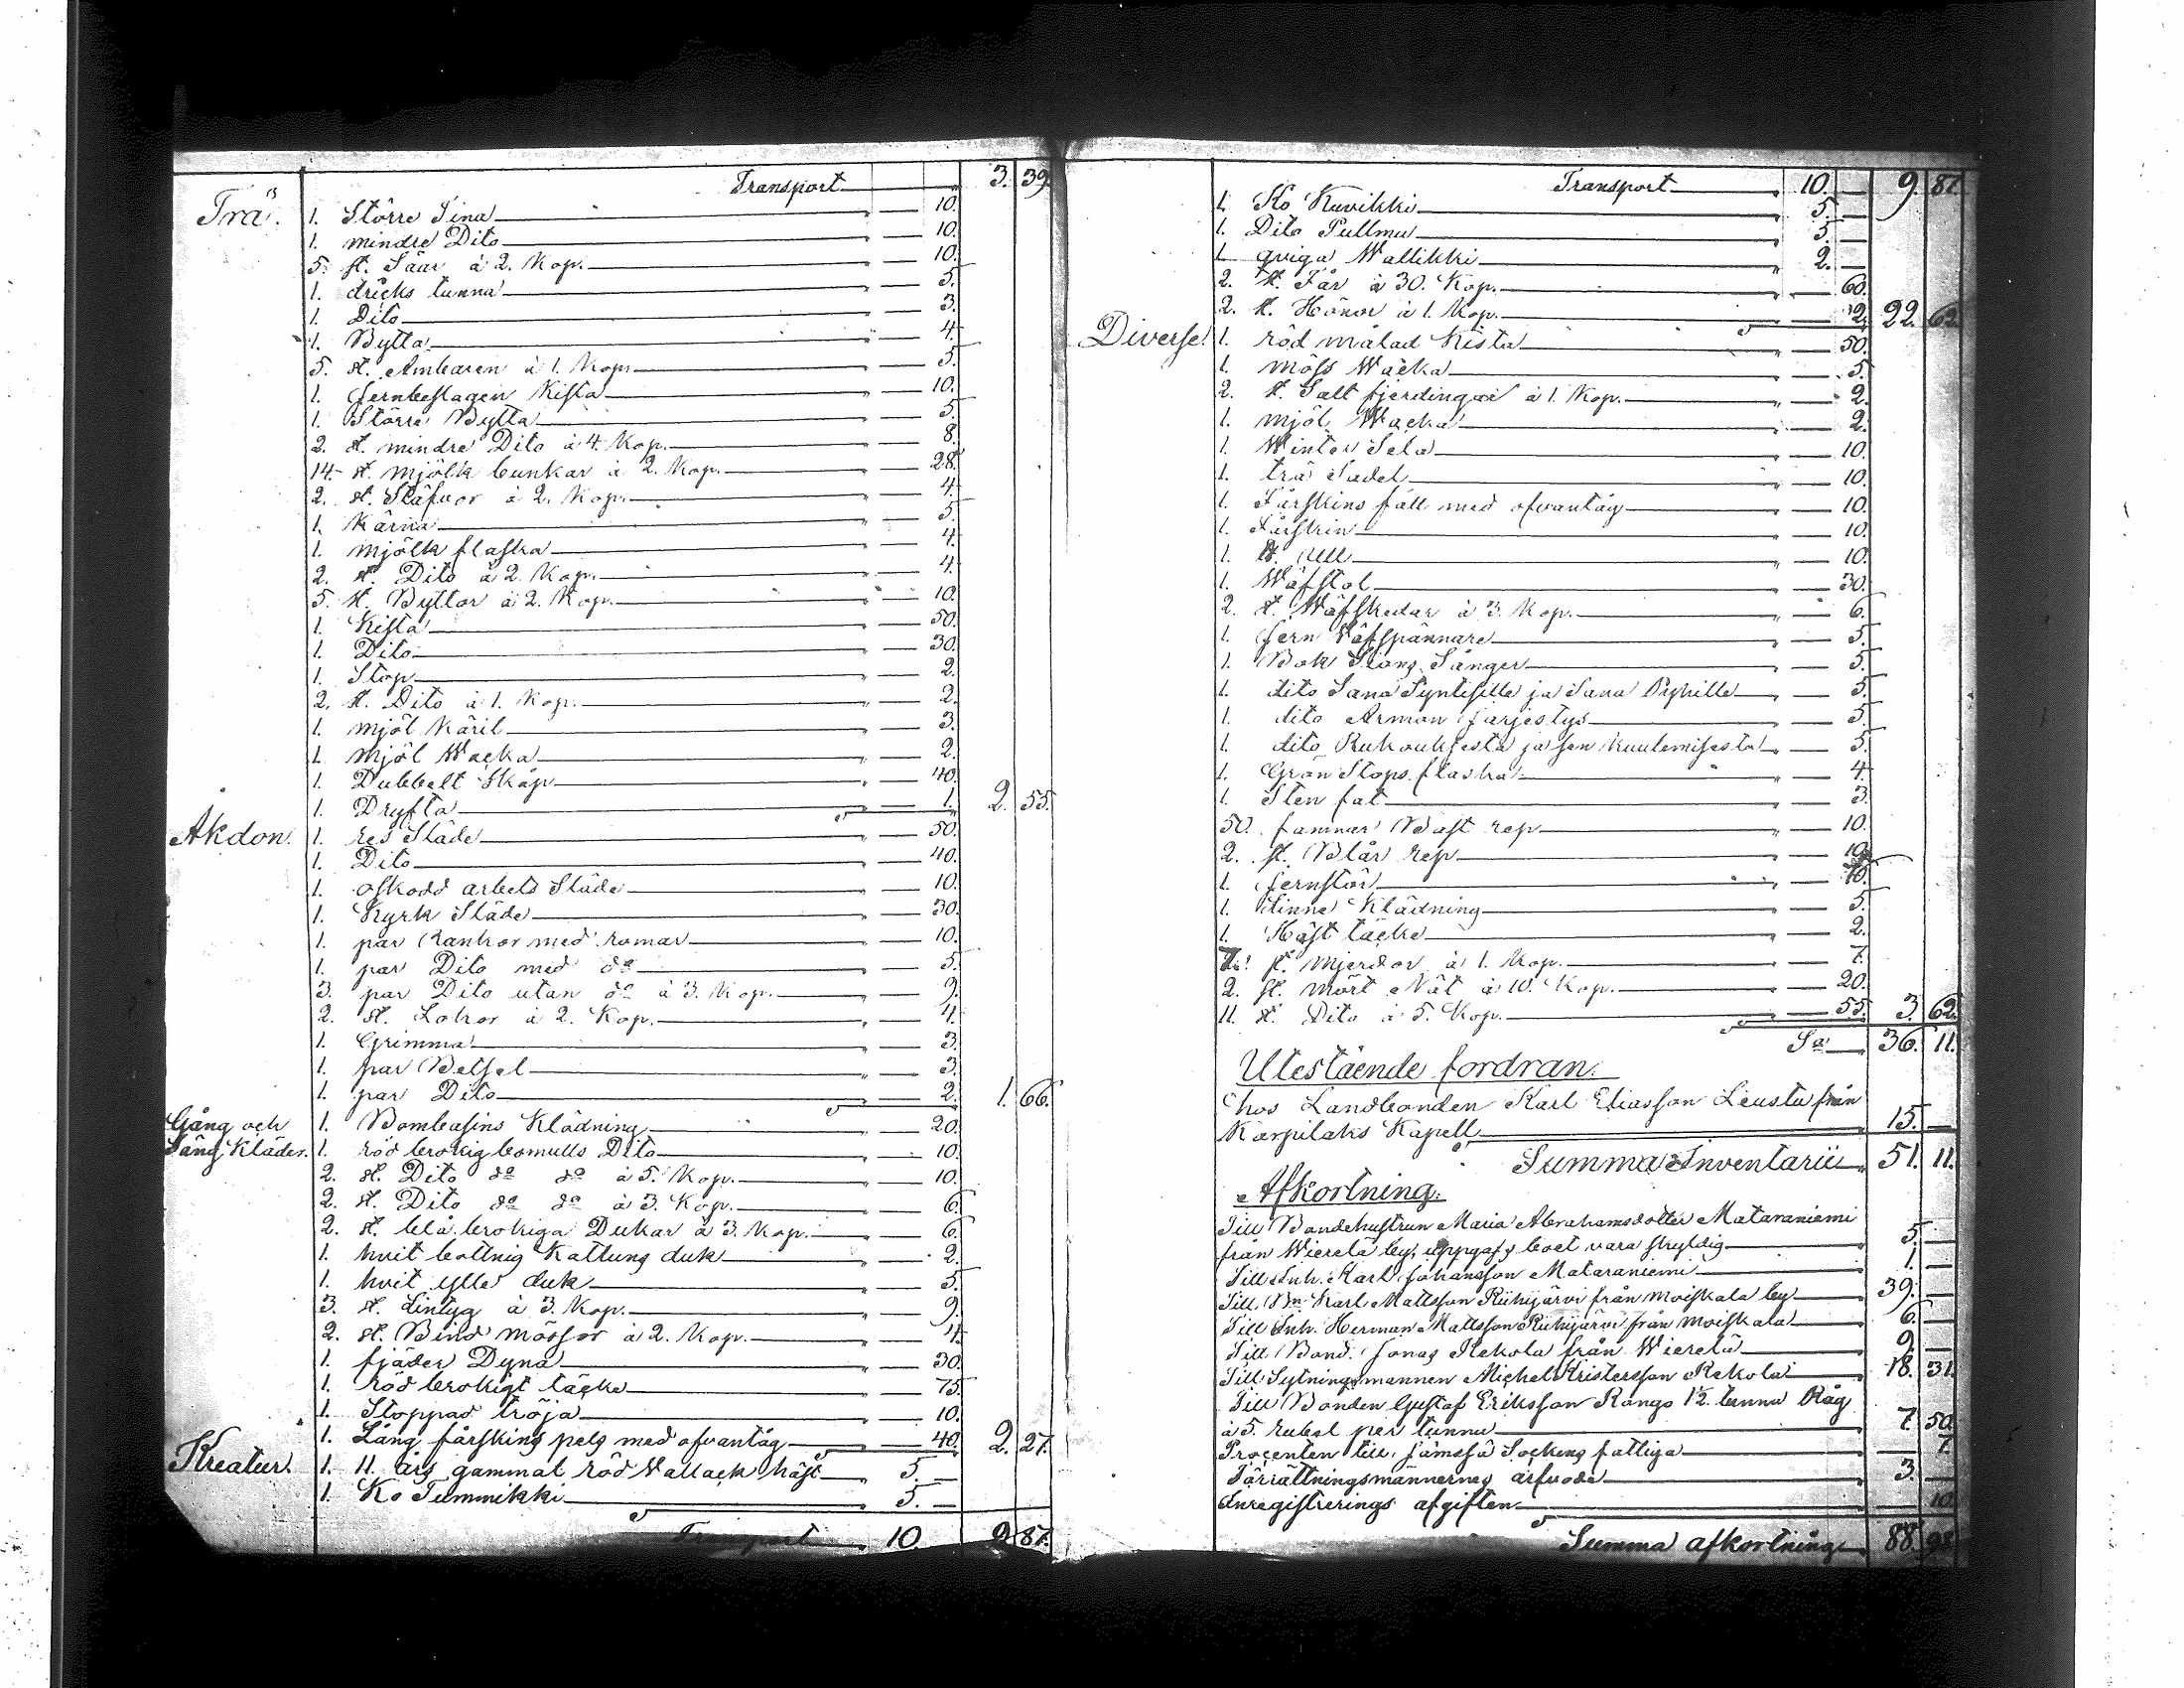 Transport 3. 39.
Trä. 1. Större Tina 10.
1. mindre Dito 10.
5. st. Såar à 2. Kop. 10.
1. dricks tunna 5.
1. Dito 3.
1. Bytta 4.
5. st. Ämbaren à 1. Kop. 5.
1. Jernbeslagen Kista 10.
1. Större Bytta 5.
2. st. mindre Dito à 4. Kop. 8.
14. st. mjölk bunkar à 2. Kop. 28.
2. st. Stäfvor à 2. Kop. 4.
1. Kärna 5.
1. mjölk flaska 4.
2. st. Dito à 2. Kop. 4.
5. st. Byttor à 2. Kop. 10.
1. Kista 50.
1. Dito 30.
1. Stop 2.
2. st. Dito à 1. Kop. 2.
1. mjöl Käril 3.
1. mjöl Wacka 2.
1. Dubbelt Skåp 40.
1. Dryfta 1. 2. 55.
Åkdon. 1. res Släde 50.
1. Dito 40.
1. oskodd arbets Släde 10.
1. Kyrk Släde 30.
1. par Rankor med romar 10.
1. par Dito med do 5.
3. par Dito utan do à 3. Kop. 9.
2. st. Lokor à 2. Kop. 4.
1. Grimma 3.
1. par Betsel 3.
1. par Dito 2. 1. 66.
Gång och 1. Bombasins Klädning 20.
Säng Kläder. 1. röd brokig bomulls Dito 10.
2. st. Dito do do à 5. Kop. 10.
2. st. Dito do do à 3. Kop. 6.
2. st. blå brokiga Dukar à 3. Kop. 6.
1. hvit bottnig Kattuns duk 2.
1. hvit ylle duk 5.
3. st. Lintyg à 3. Kop. 9.
2. st. Bind mössor à 2. Kop. 4.
1. fjäder Dyna 30.
1. röd brokigt täcke 75.
1. Stoppad tröja 10.
1. Lång fårskins pels med ofvantåg 40. 2. 27.
Kreatur. 1. 11. års gammal röd Vallack häst 5. —
1. Ko Tummikki 5. —
Transport 10. 9. 87.
Transport 10. — 9. 87.
1. Ko Kuvikki 5. —
1. Dito Pullmu 5. —
1. qviga Wallikki 2. —
2. st. Får à 30. Kop. 60.
2. st. Hönor à 1. Kop. 2. 22. 62.
Diverse. 1. röd målad Kista 50.
1. möss Wacka 5.
2. st. Salt fjerdingar à 1. Kop. 2.
1. mjöl Wacka 2.
1. Winter Sela 10.
1. trä Sadel 10.
1. Fårskins fäll med ofvantåg 10.
1. Fårskin 10.
1. Ull 10.
1. Wäfstol 30.
2. st. Wäfskedar à 3. Kop. 6.
1. Jern Wäfspännare 5.
1. Bok Sions Sånger 5.
1. dito Sana Syntisille ja Sana Pyhille 5.
1. dito Armon Järjestys 5.
1. dito Rukouksesta ja sen Kuulemisesta 5.
1. Grön Stops flaska 4.
1. Sten fat 3.
50. famnar Bast rep 10.
2. st. Blår rep 10.
1. Jernstör 10.
1. Klädning 5.
1. Häst täcke 2.
7. st. mjerdor à 1. Kop. 7.
2. st. mört Nät à 10. Kop. 20.
11. st. Dito à 5. Kop. 55. 3. 62.
Sa 36. 11.
Utestående fordran.
hos Landbonden Karl Eliasson Leusta från
Karpilaks Kapell 15. —
Summa Inventarii 51. 11.
Afkortning.
Till Bondehustrun Maria Abrahamsdotter Mataraniemi
från Wierelä by, uppgafs boet vara skyldig 5. —
Till Inh. Karl Johansson Mataraniemi 1. —
Till Bn Karl Mattsson Riihijärvi från Moiskala by 39. —
Till Inh. Herman Mattsson Riihijärvi från Moiskala 6. —
Till Bond. Jonas Rekola från Wierelä 9. —
Till Sytningsmannen Michel Kristersson Rekola 18. 31.
Till Bonden Gustaf Eriksson Kongo 1½ tunna Råg
à 5. rubel per tunna 7. 50.
Procenten till Jämsä Sockens fattiga 7.
Förrättningsmännernes arfvode 3. —
Inregistrerings afgiften 10.
Summa afkortning 88. 98.